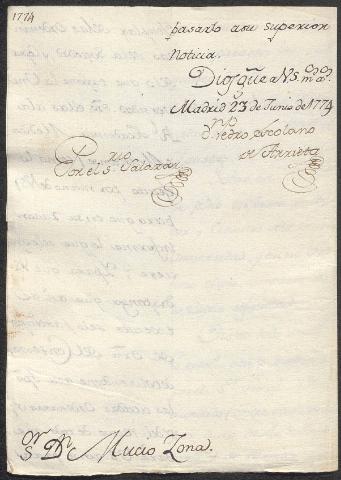 1774
pasarlo a su superior
noticia.
Dios gūe a VS. m.s a.s
Madrid 23 de Junio de 1774
D.n Pedro Escolano
de Arrieta
Por el s.rio Salazar
S.or D.n Mucio Zona.